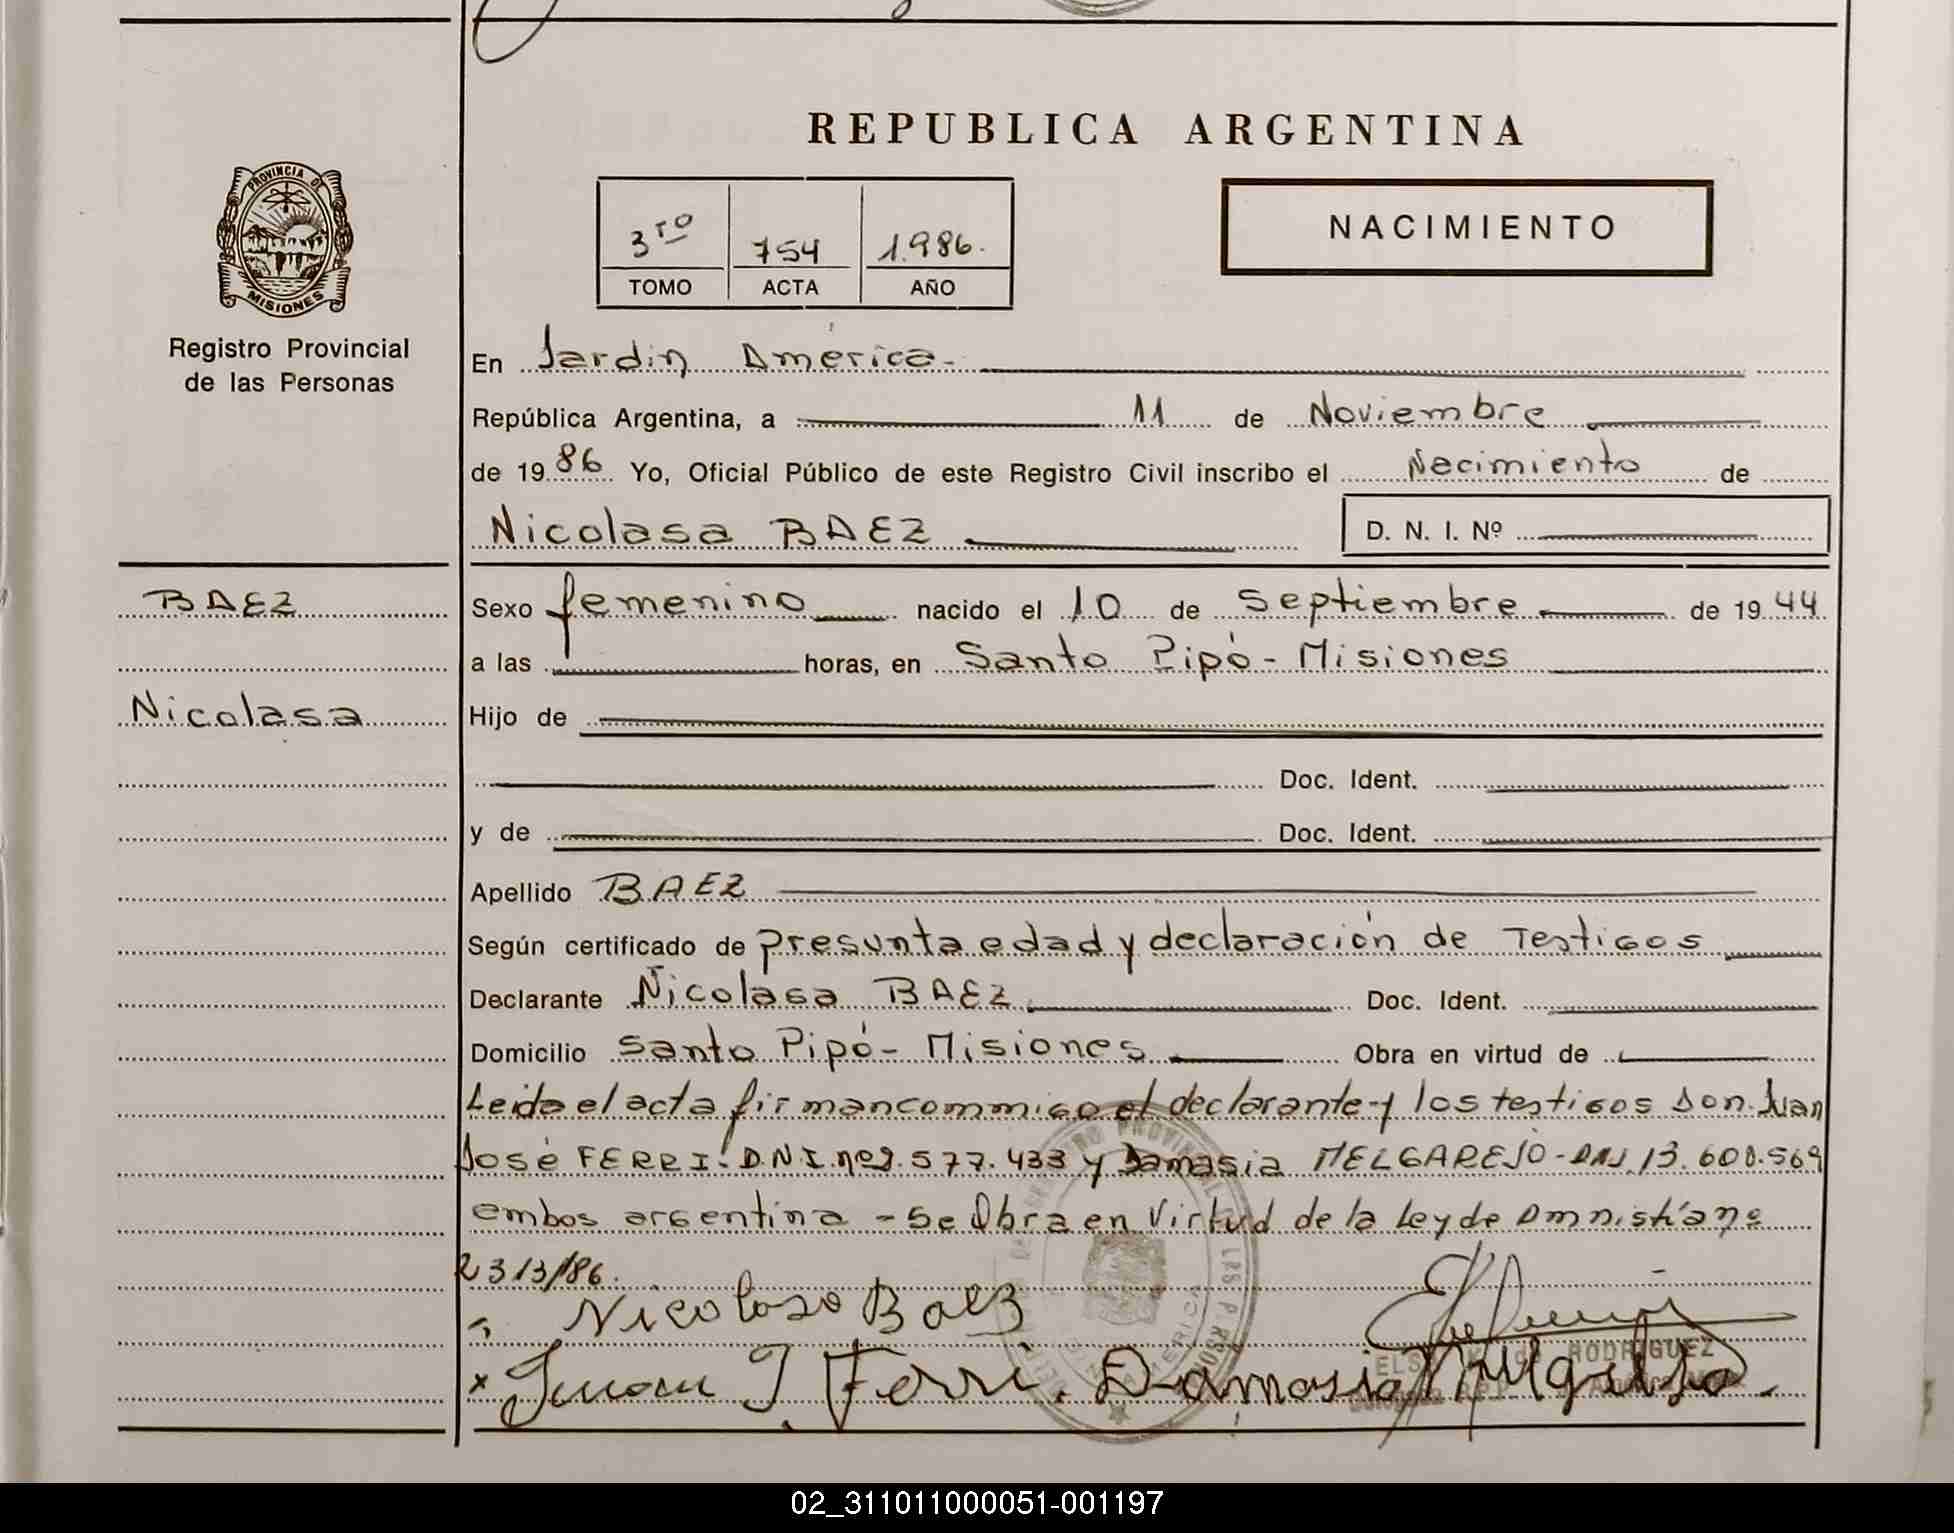 REPUBLICA ARGENTINA
PROVINCIA DE
MISIONES
Registro Provincial
de las Personas
3ro 754 1.986.
TOMO ACTA AÑO
NACIMIENTO
En Jardin América.
República Argentina, a 11 de Noviembre
de 1986 Yo, Oficial Público de este Registro Civil inscribo el Nacimiento de
Nicolasa BAEZ D. N. I. Nº
BAEZ
Nicolasa
Sexo femenino nacido el 10 de Septiembre de 1944
a las horas, en Santo Pipó - Misiones
Hijo de
Doc. Ident.
y de Doc. Ident.
Apellido BAEZ
Según certificado de presunta edad y declaración de Testigos
Declarante Nicolasa BAEZ Doc. Ident.
Domicilio Santo Pipó - Misiones Obra en virtud de
Leida el acta firman commigo el declarante y los testigos Don Juan
José FERRI. D.N.I. nº 577.433 y Damasia MELGAREJO - DNI 13.600.569
ambos argentina - Se Obra en Virtud de la Ley de Amnistía nº
23/3/86.
Nicolasa Baez
x Juan J. Ferri. Damasia Melgarejo.
RODRIGUEZ
02_311011000051-001197